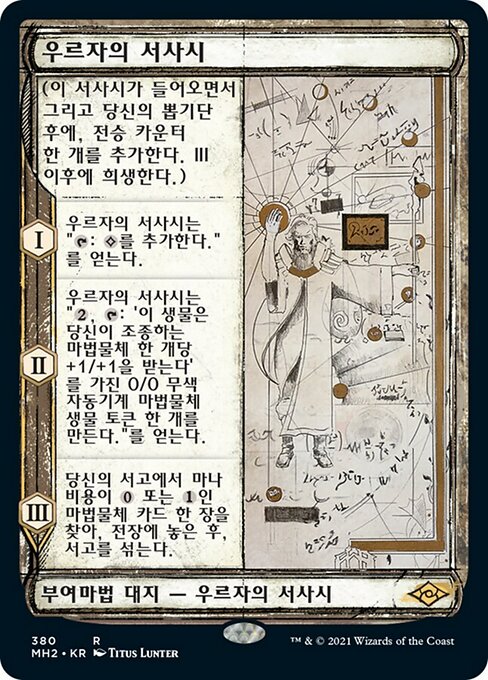 우르자의 서사시
(이 서사시가 들어오면서
그리고 당신의 뽑기단
후에, 전승 카운터
한 개를 추가한다. III
이후에 희생한다.)
I
우르자의 서사시는
": 를 추가한다."
를 얻는다.
II
우르자의 서사시는
"2, : '이 생물은
당신이 조종하는
마법물체 한 개당
+1/+1을 받는다'
를 가진 0/0 무색
자동기계 마법물체
생물 토큰 한 개를
만든다."를 얻는다.
III
당신의 서고에서 마나
비용이 0 또는 1인
마법물체 카드 한 장을
찾아, 전장에 놓은 후,
서고를 섞는다.
부여마법 대지 — 우르자의 서사시
380 R
MH2 • KR TITUS LUNTER
™ & © 2021 Wizards of the Coast